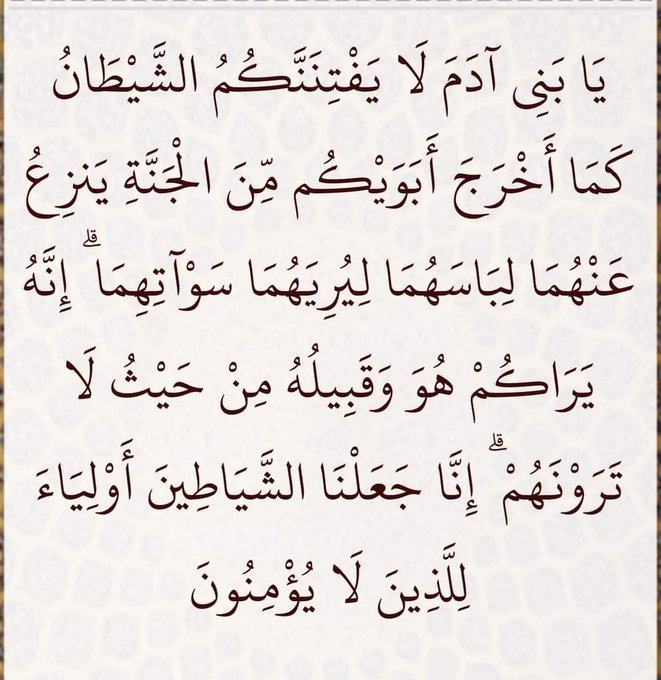 يَا بَنِى آدَمَ لَا يَفْتِنَنَّكُمُ الشَّيْطَانُ
كَمَا أَخْرَجَ أَبَوَيْكُم مِّنَ الْجَنَّةِ يَنزِعُ
عَنْهُمَا لِبَاسَهُمَا لِيُرِيَهُمَا سَوْآتِهِمَا ۗ إِنَّهُ
يَرَاكُمْ هُوَ وَقَبِيلُهُ مِنْ حَيْثُ لَا
تَرَوْنَهُمْ ۗ إِنَّا جَعَلْنَا الشَّيَاطِينَ أَوْلِيَاءَ
لِلَّذِينَ لَا يُؤْمِنُونَ